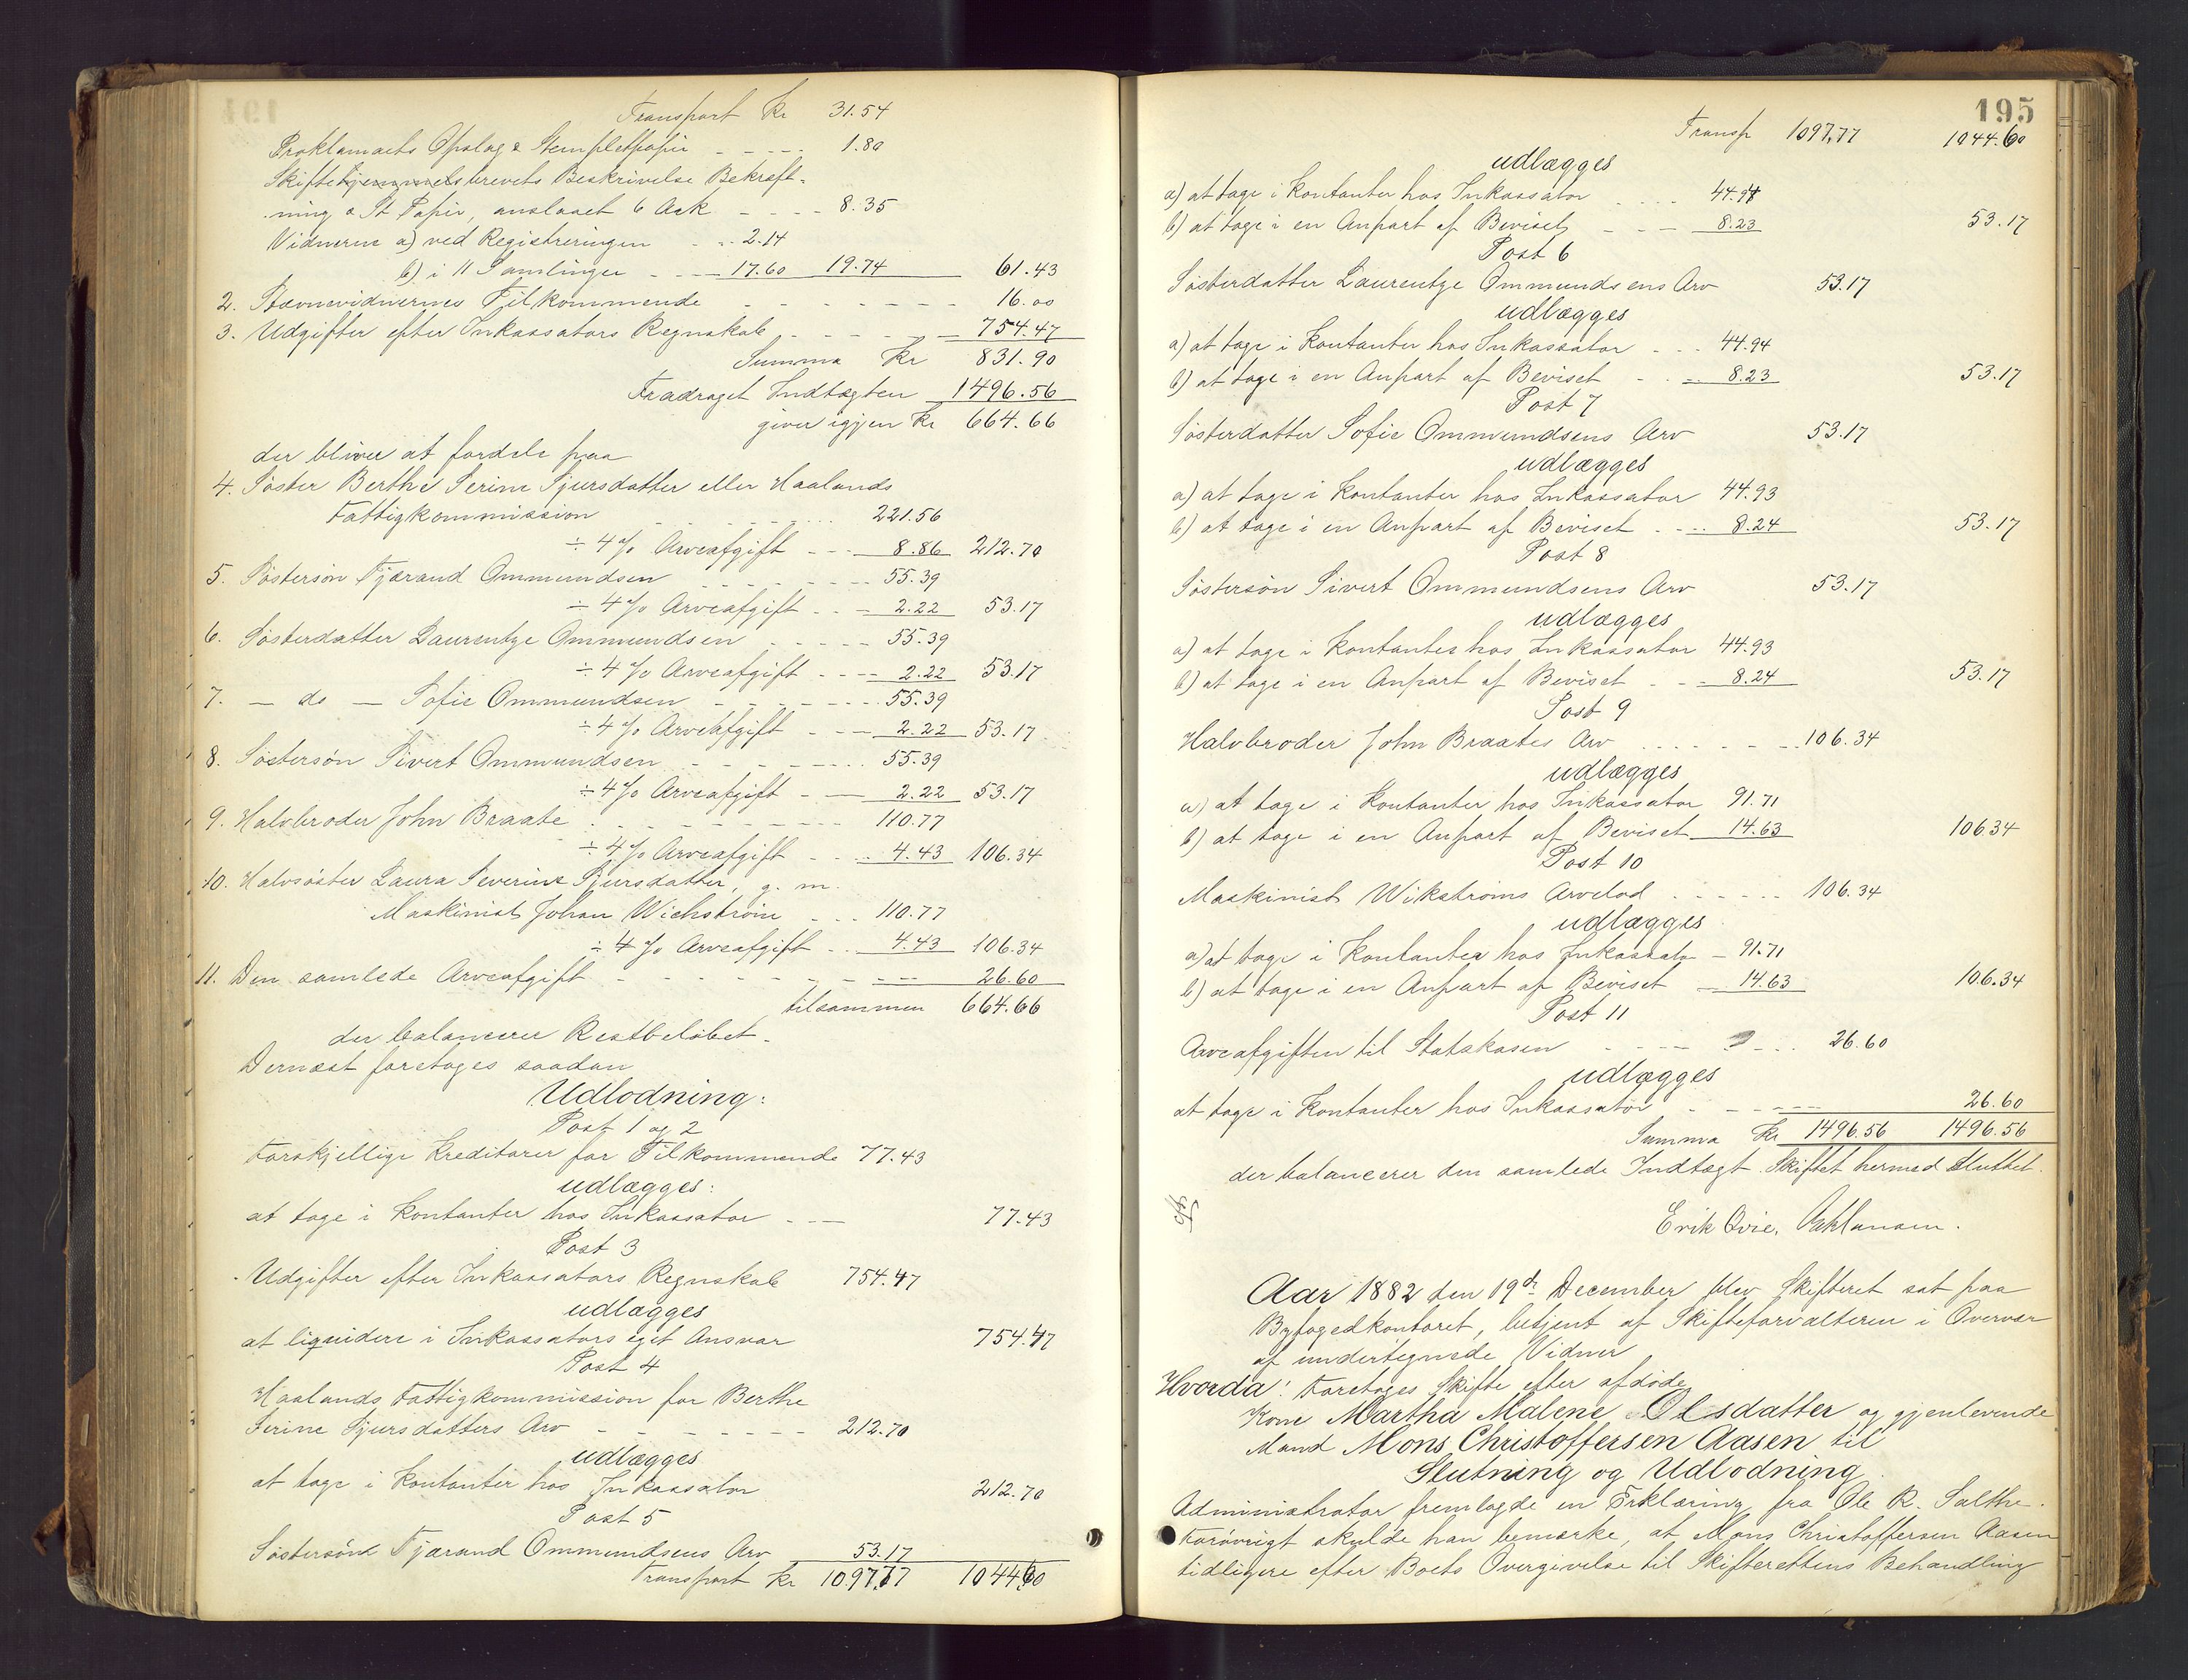 Transport Kr 31.54
Proklamaets Opslag & Stempletpapir - - - - 1.80
Skiftehjemmelsbrevets Beskrivelse Bekræft-
ning & St Papir, anslaaet 6 Ark - - - - 8.35
Vidnerne a) ved Registreringen - - 2.14
b) i 11 Samlinger - - - 17.60 19.74 61.43
2. Stævnevidnernes Tilkommende - - - - - - 16.00
3. Udgifter efter Inkassators Regnskab - - - - - 754.47
Summa Kr 831.90
Fradraget Indtægten 1496.56
giver igjen Kr 664.66
der bliver at fordele paa
4. Søster Berthe Serine Sjursdatter eller Haalands
Fattigkommission - - - - - 221.56
÷ 4 % Arveafgift - - - 8.86 212.70
5. Søstersøn Tjærand Ommundsen - - - - - - 55.39
÷ 4 % Arveafgift - - - 2.22 53.17
6. Søsterdatter Laurentze Ommundsen - - - - - 55.39
÷ 4 % Arveafgift - - - - 2.22 53.17
7. — do — Sofie Ommundsen - - - - - - - 55.39
÷ 4 % Arveafgift - - - 2.22 53.17
8. Søstersøn Sivert Ommundsen - - - - - - - 55.39
÷ 4 % Arveafgift - - - 2.22 53.17
9. Halvbroder John Braate - - - - - - - - 110.77
÷ 4 % Arveafgift - - - 4.43 106.34
10. Halvsøster Laura Severine Sjursdatter, g. m.
Maskinist Johan Wichstrøm - - - 110.77
÷ 4 % Arveafgift - - - 4.43 106.34
11. Den samlede Arveafgift - - - - - - - - - 26.60
tilsammen 664.66
der balancerer Restbeløbet.
Dernæst foretoges saadan
Udlodning:
Post 1 og 2
Forskjellige Kreditorer for Tilkommende 77.43
udlægges:
at tage i Kontanter hos Inkassator - - — 77.43
Post 3
Udgifter efter Inkassators Regnskab 754.47
udlægges
at liquidere i Inkassators eget Ansvar 754.47
Post 4
Haalands Fattigkommission for Berthe
Serine Sjursdatters Arv - - - - - - - 212.70
udlægges
at tage i Kontanter hos Inkassator 212.70
Post 5
Søstersønn Tjærand Ommundsens Arv 53.17
Transport Kr 1097.77 1044.60
195
Transp 1097.77 1044.60
udlægges
a) at tage i Kontanter hos Inkassator - - - - 44.94
b) at tage i en Anpart af Beviset - - - 8.23 53.17
Post 6
Søsterdatter Laurentze Ommundsens Arv 53.17
udlægges
a) at tage i Kontanter hos Inkassator - - - 44.94
b) at tage i en Anpart af Beviset - - - 8.23 53.17
Post 7
Søsterdatter Sofie Ommundsens Arv 53.17
udlægges
a) at tage i Kontanter hos Inkassator 44.93
b) at tage i en Anpart af Beviset - - - - 8.24 53.17
Post 8
Søstersøn Sivert Ommundsens Arv 53.17
udlægges
a) at tage i Kontanter hos Inkassator 44.93
b) at tage i en Anpart af Beviset - - - 8.24 53.17
Post 9
Halvbroder John Braates Arv - - - - - - 106.34
udlægges
a) at tage i Kontanter hos Inkassator 91.71
b) at tage i en Anpart af Beviset 14.63 106.34
Post 10
Maskinist Wikstrøms Arvelod - - - - - - 106.34
udlægges
a) at tage i Kontanter hos Inkassator - 91.71
b) at tage i en Anpart af Beviset 14.63 106.34
Post 11
Arveafgiften til Statskassen - - - - - - - 26.60
udlægges
at tage i Kontanter hos Inkassator - - - - - 26.60
Summa Kr 1496.56 1496.56
der balancerer den samlede Indtægt. Skiftet hermed sluttet.
Erik Qvie.
Aar 1882 den 19de December blev Skifteret sat paa
Byfogedkontoret, betjent af Skifteforvalteren i Overvær
af undertegnede Vidner
Hvorda: Foretoges Skifte efter afdøde
Kone Martha Malene Olsdatter og gjenlevende
Mand Mons Christoffersen Aasen til
Slutning og Udlodning.
Administrator fremlagde en Erklæring fra Ole R. Salthe.
Forøvrigt skulde han bemærke, at Mons Christoffersen Aasen
tidligere efter Boets Overgivelse til Skifterettens Behandling